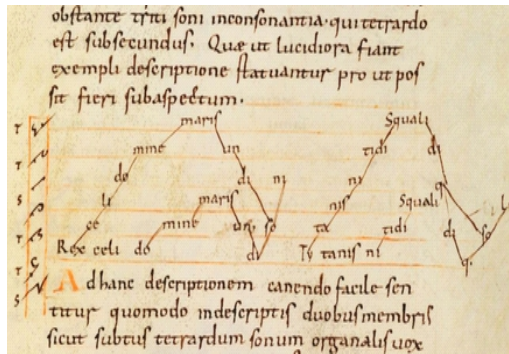 obstante triti soni inconsonantia· qui tetrardo
est subsecundus. Quæ ut lucidiora fiant
exempli descriptione statuantur pro ut pos
sit fieri subaspectum.
maris Squali
mine un tidi di
do di ni ni q
li maris nis Squali l
ce mine un so ta tidi di so
Rex celi do di Ty tanis ni q.
Ad hanc descriptionem canendo facile sen
titur quomodo indescriptis duobus membris
sicut subtus tetrardum sonum organalis uox